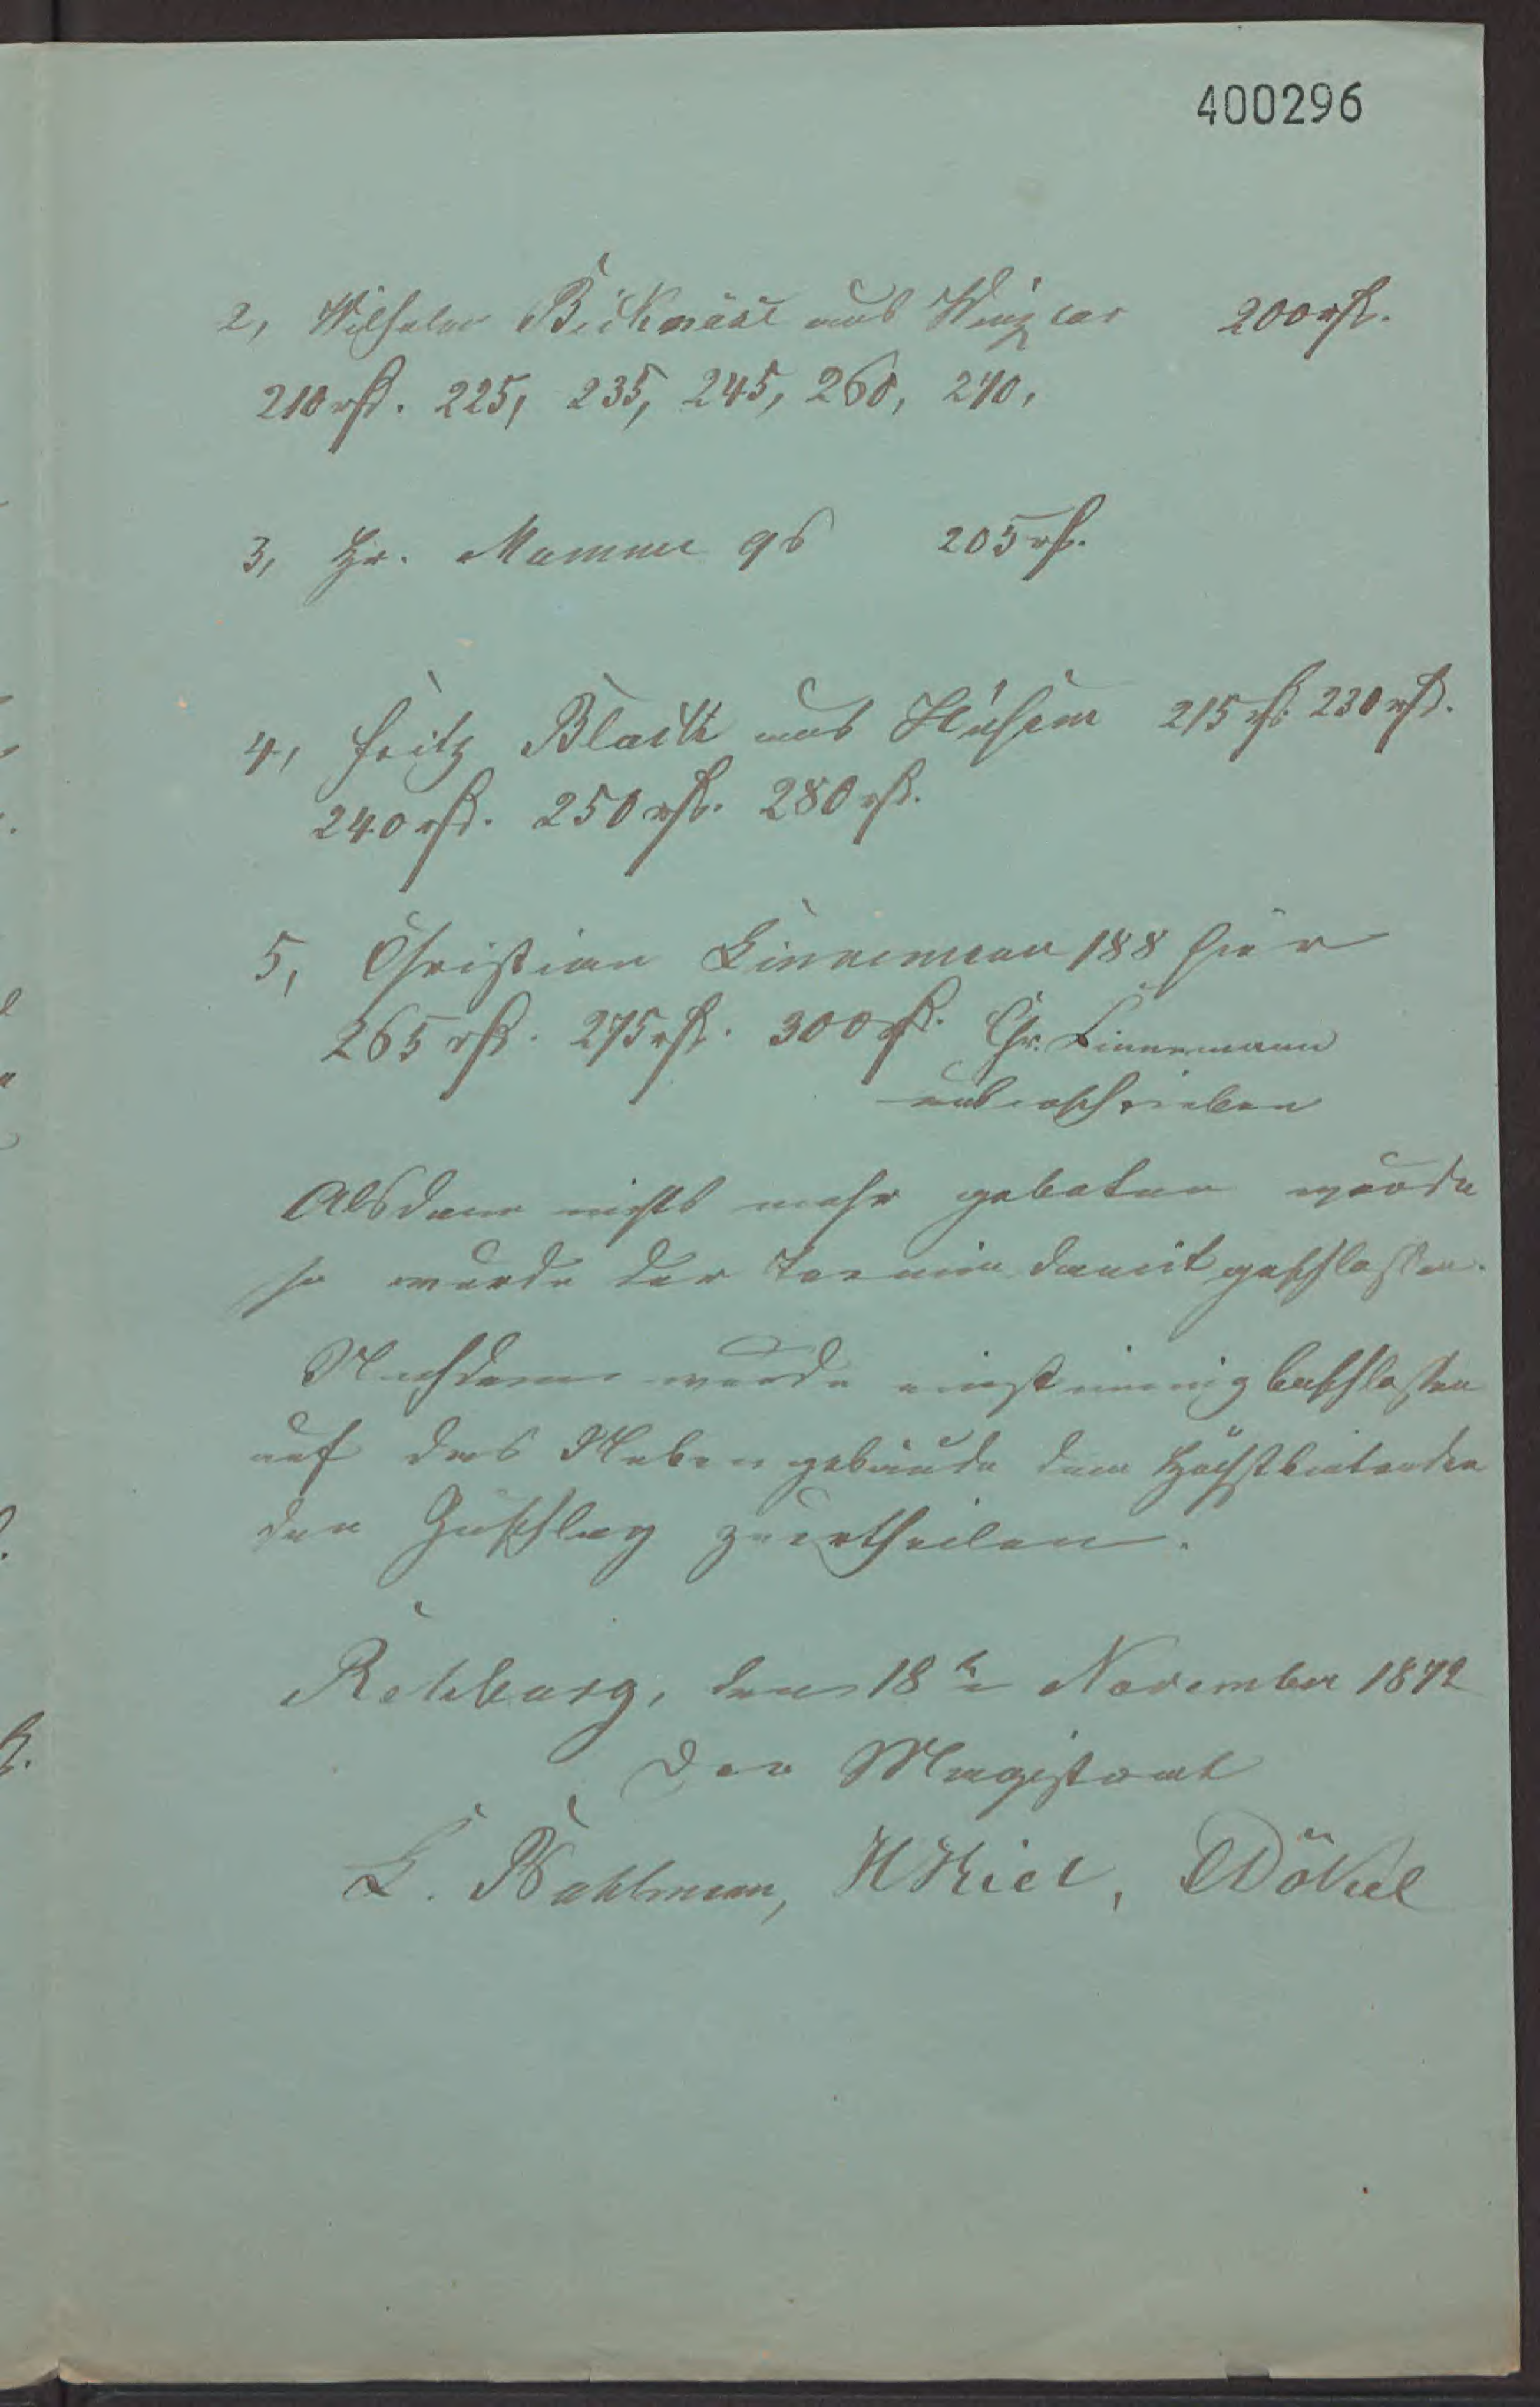 400296
2, Wilhelm Bicknäse aus Winzlar 200 rth.
210 rth. 225, 235, 245, 260, 270,
3, Hr. Mamme 96 205 rth.
4, Fritz Blaike aus Husum 215 rth. 230 rth.
240 rth. 250 rth. 280 rth.
5, Christian Linnemann 188 hier
265 rth. 275 rth. 300 rth. Chr. Linnemann
unterschrieben
Alsdann nichts mehr geboten wurde
so wurde der Termin damit geschlossen.
Nachdem wurde einstimmig beschlossen
auf das Nebengebäude dem Höchstbietenden
den Zuschlag zu ertheilen.
Rehburg, den 18ten November 1872
Der Magistrat
Wahlmann, H Kiel,